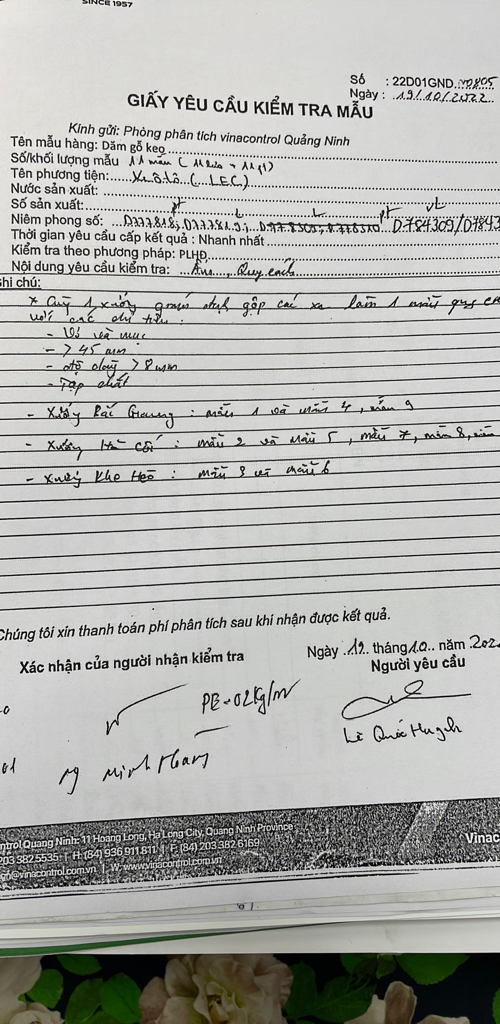 SINCE 1957
Số : 22D01GND
Ngày : 19/10/2022
GIẤY YÊU CẦU KIỂM TRA MẪU
Kính gửi: Phòng phân tích vinacontrol Quảng Ninh
Tên mẫu hàng: Dăm gỗ keo
Số/khối lượng mẫu 11 mẫu
Tên phương tiện: Xe ôtô (LEC)
Nước sản xuất:
Số sản xuất:
Niêm phong số: D777818; D777819; D784309/D7843
Thời gian yêu cầu cấp kết quả : Nhanh nhất
Kiểm tra theo phương pháp: PLHĐ
Nội dung yêu cầu kiểm tra: Ẩm, Quy cách
Ghi chú:
* Cùng 1 xưởng gộp các xe làm 1 mẫu quy
với các chỉ tiêu:
- Vỏ và mục
- > 45 mm
- Độ dày > 8 mm
- Tạp chất
- Xưởng Bắc Giang : mẫu 1 và mẫu 4, mẫu 9
- Xưởng Hà Cối : mẫu 2 và mẫu 5, mẫu 7, mẫu 8,
- Xưởng Kho : mẫu 3 và mẫu 6
Chúng tôi xin thanh toán phí phân tích sau khi nhận được kết quả.
Ngày 19 tháng 10 năm 202
Xác nhận của người nhận kiểm tra
Người yêu cầu
Lê Quốc Huynh
ntrol Quang Ninh: 11 Hoang Long, Ha Long City, Quang Ninh Province
203 382 5535 | H: (84) 936 911 811 | F: (84) 203 382 6169
@vinacontrol.com.vn | W: www.vinacontrol.com.vn
Vinac